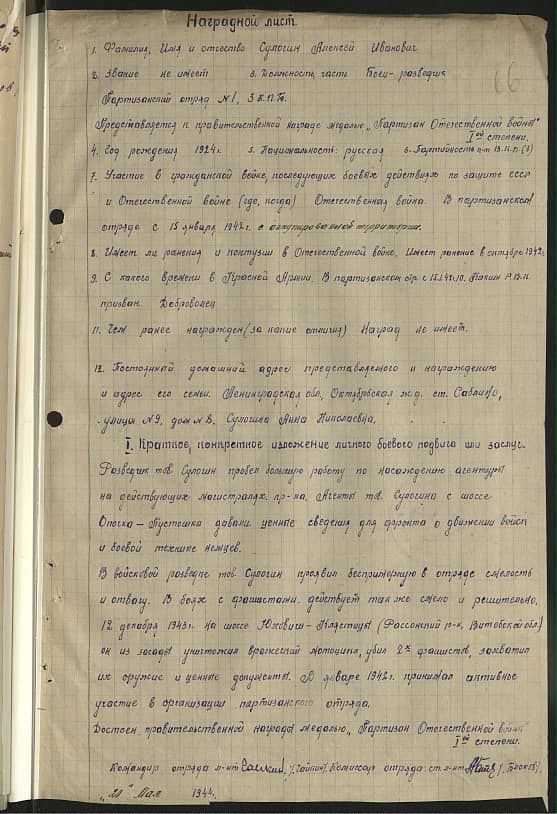 Наградной лист
66
1. Фамилия, Имя и отчество Сулогин Алексей Иванович
2. Звание не имеет 3. Должность, часть Боец-разведчик
Партизанский отряд №1,
Представляется к правительственной награде медалью „Партизан Отечественной войны"
Iой степени.
4. Год рождения 1924г. 5. Национальность: русская 6. Партийность
7. Участие в гражданской войне, последующих боевых действиях по защите СССР
и Отечественной войне (где, когда) Отечественная война. В партизанском
отряде с 15 января 1942г. с оккупированной территории.
8. Имеет ли ранения и контузии в Отечественной войне. Имеет ранение в октябре 1942г.
9. С какого времени в Красной Армии. В партизанском отр. с
призван Доброволец
11. Чем ранее награжден (за какие отличия) Наград не имеет.
12. Постоянный домашний адрес представляемого к награждению
и адрес его семьи. Ленинградская обл, Октябрьская ж.д. ст. Саблино,
улицы №9, дом №8, Сулогина Анна Николаевна.
I. Краткое, конкретное изложение личного боевого подвига или заслуг.
Разведчик тов. Сулогин провел большую работу по насаждению агентуры
на действующих магистралях пр-ка. Агенты тов. Сулогина с шоссе
Опочка – Пустошка давали ценные сведения для фронта о движении войск
и боевой технике немцев.
В войсковой разведке тов. Сулогин проявил беспримерную в отряде смелость
и отвагу. В боях с фашистами действует так же смело и решительно.
12 декабря 1943г. на шоссе Юховичи – Клястицы (Рассонский р-н, Витебской обл.)
он из засады уничтожил вражеский мотоцикл, убил 2х фашистов, захватил
их оружие и ценные документы. В январе 1942г. принимал активное
участие в организации партизанского отряда.
Достоен правительственной награды медалью „Партизан Отечественной войны"
Iой степени.
Командир отряда л-нт Комиссар отряда: ст. л-нт
„20" Мая 1944г.